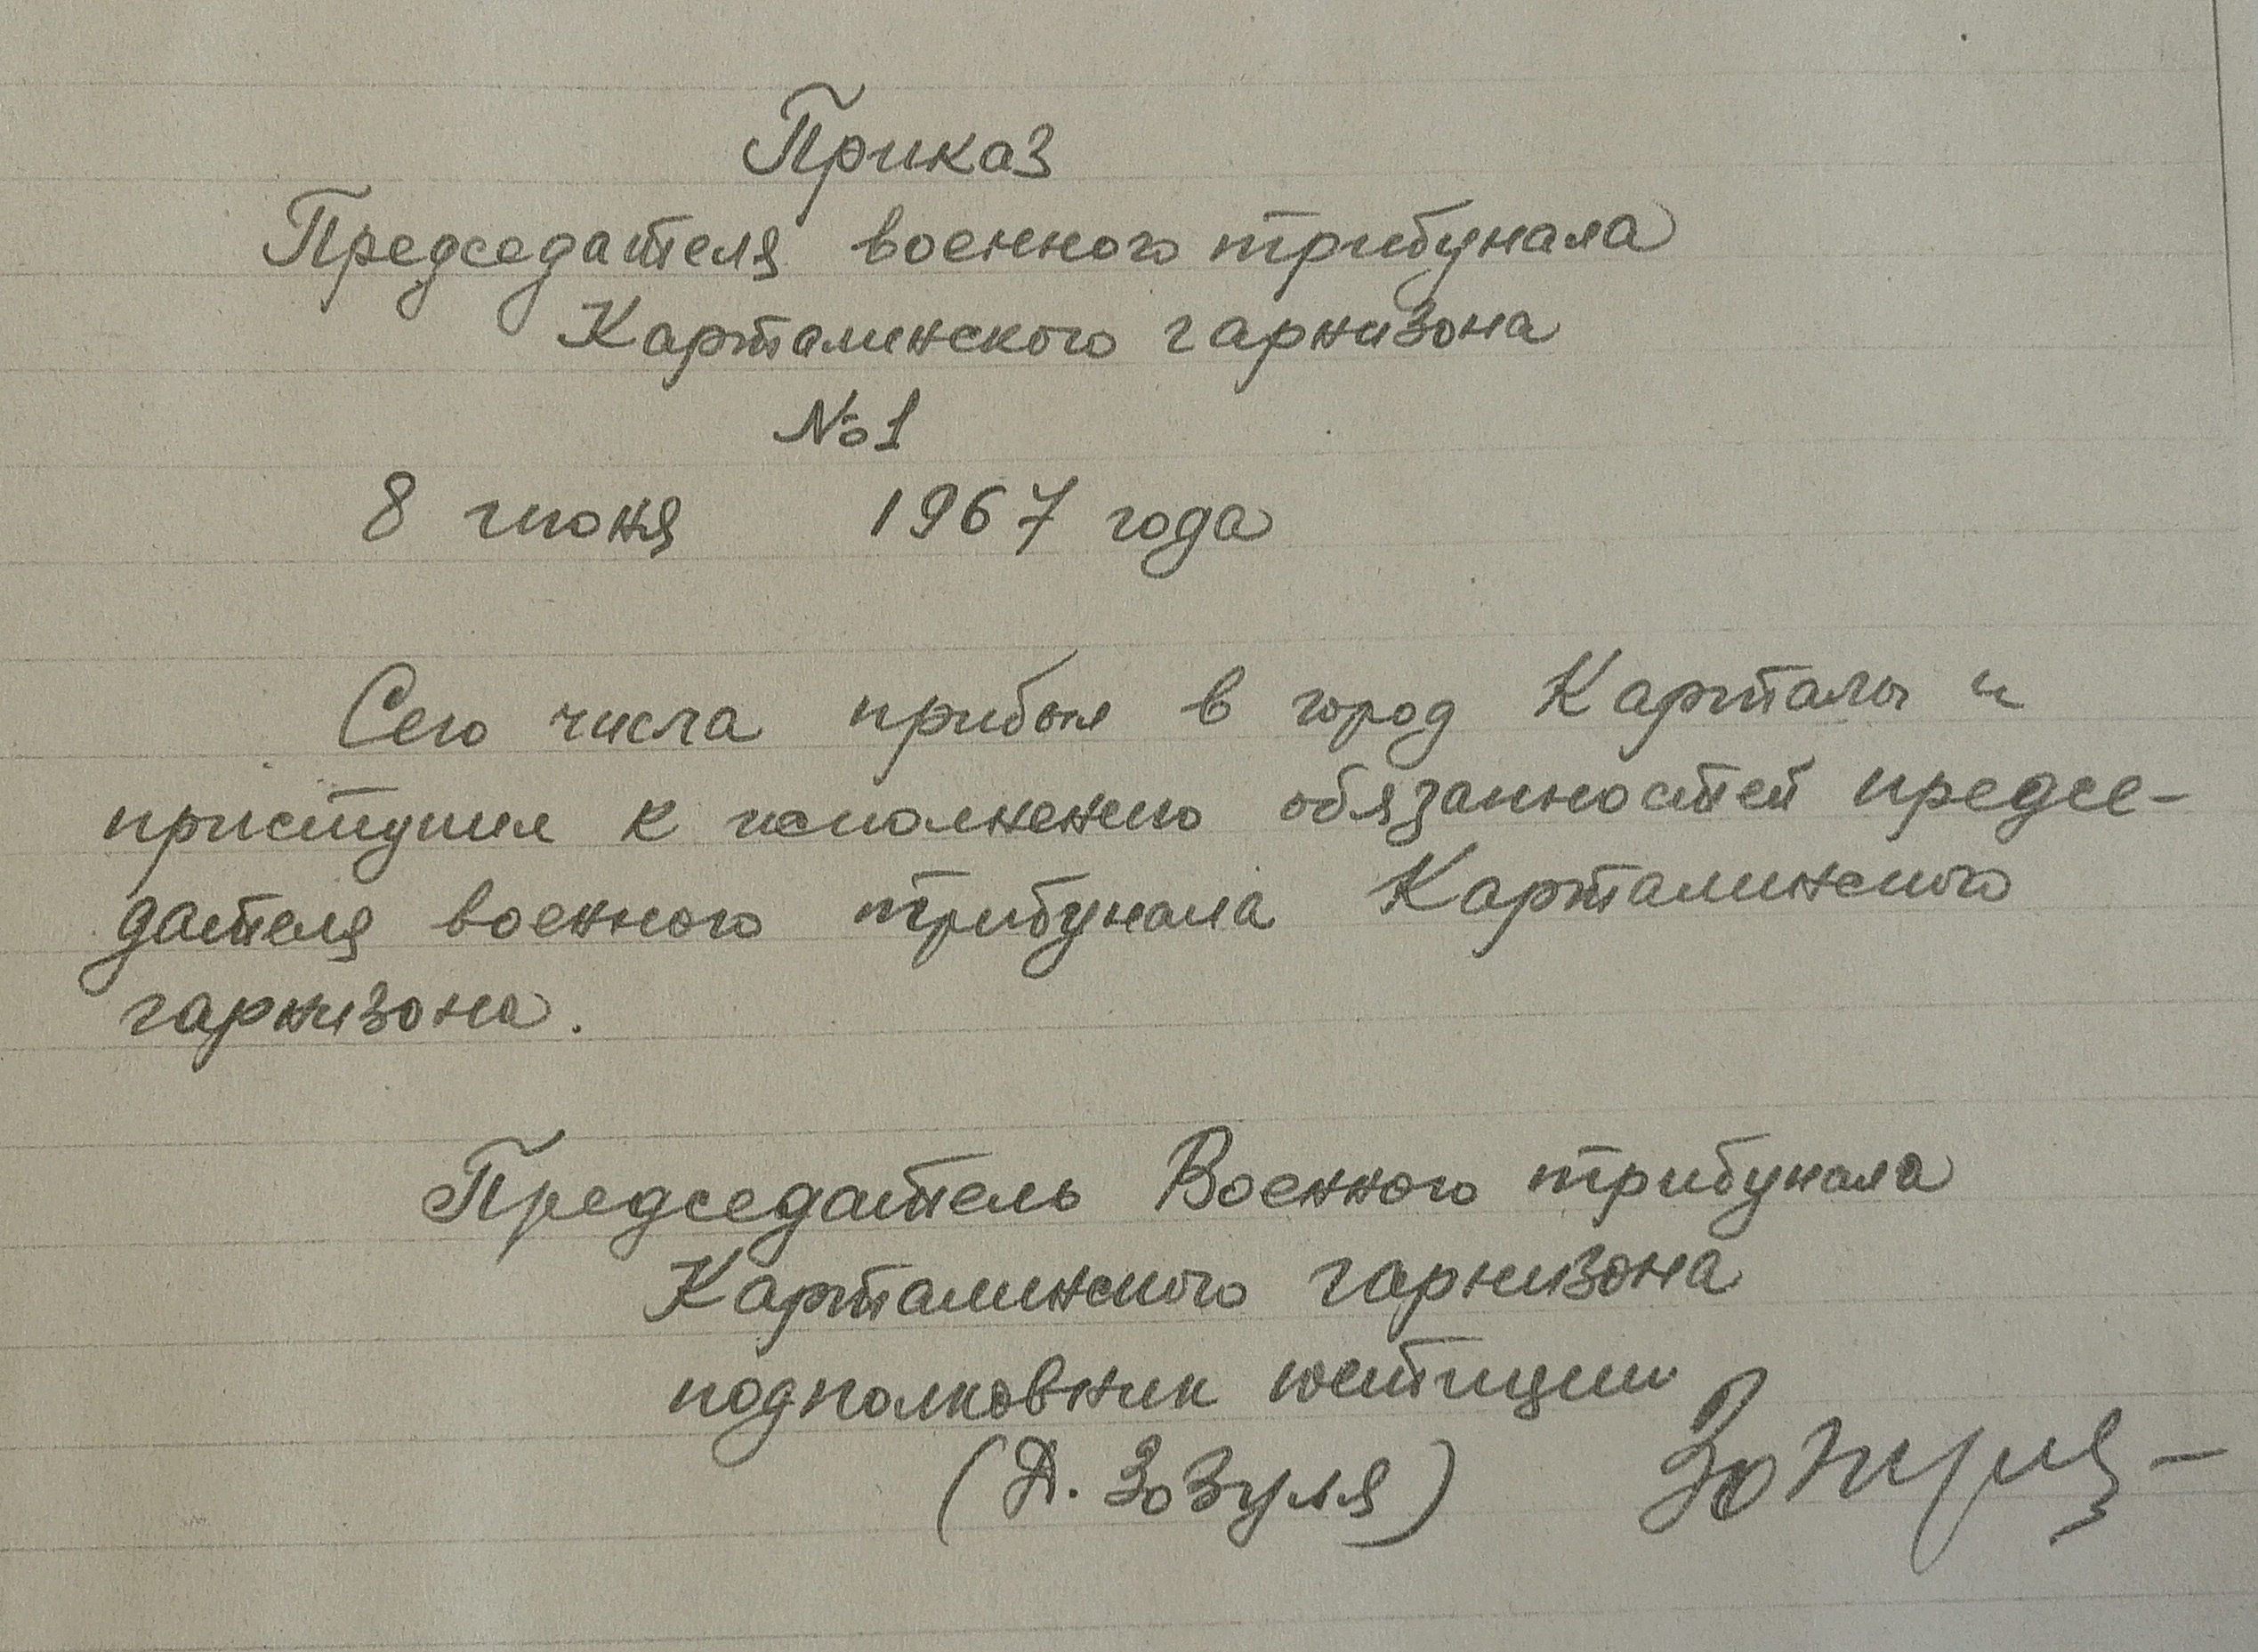 Приказ
Председателя военного трибунала
Карталинского гарнизона
№1
8 июня 1967 года
Сего числа прибыл в город Карталы и
приступил к исполнению обязанностей предсе-
дателя военного трибунала Карталинского
гарнизона.
Председатель Военного трибунала
Карталинского гарнизона
подполковник юстиции
(Д. Зозуля)